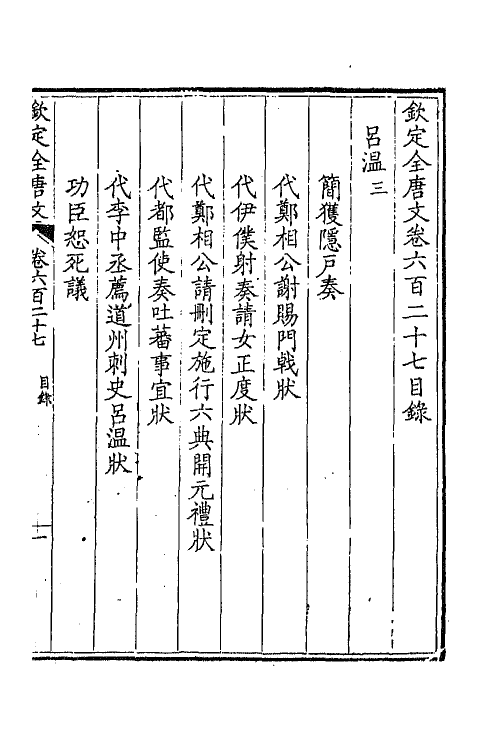 欽定全唐文卷六百二十七目錄
呂溫三
簡獲隱戶奏
代鄭相公謝賜門戟狀
代伊僕射奏請女正度狀
代鄭相公請刪定施行六典開元禮狀
代都監使奏吐蕃事宜狀
代李中丞薦道州刺史呂溫狀
功臣恕死議
欽定全唐文 卷六百二十七 目錄 一